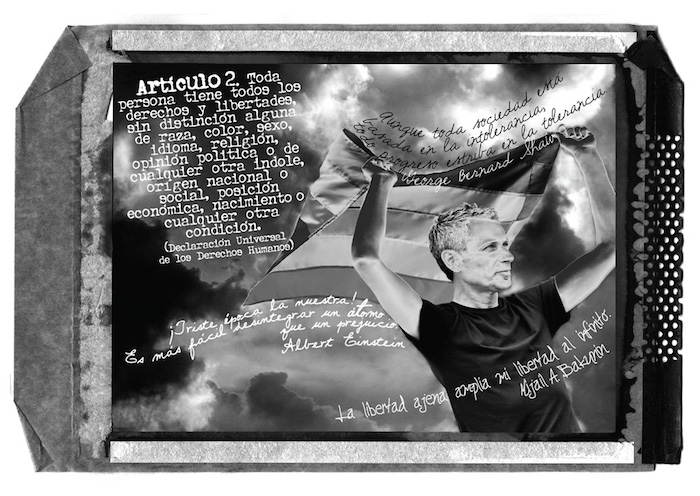 Artículo 2. Toda
persona tiene todos los
derechos y libertades,
sin distinción alguna
de raza, color, sexo,
idioma, religión,
opinión política o de
cualquier otra índole,
origen nacional o
social, posición
económica, nacimiento o
cualquier otra
condición.
(Declaración Universal
de los Derechos Humanos)
Aunque toda sociedad está
basada en la intolerancia,
todo progreso estriba en la tolerancia
George Bernard Shaw
¡Triste época la nuestra!
Es más fácil desintegrar un átomo
que un prejuicio.
Albert Einstein
La libertad ajena amplía mi libertad al infinito.
Mjail A. Bakunin